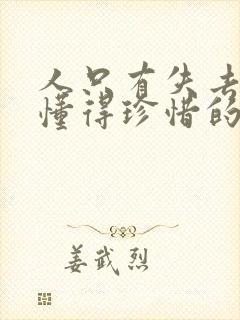 人只有失去
懂得珍惜的
姜武烈